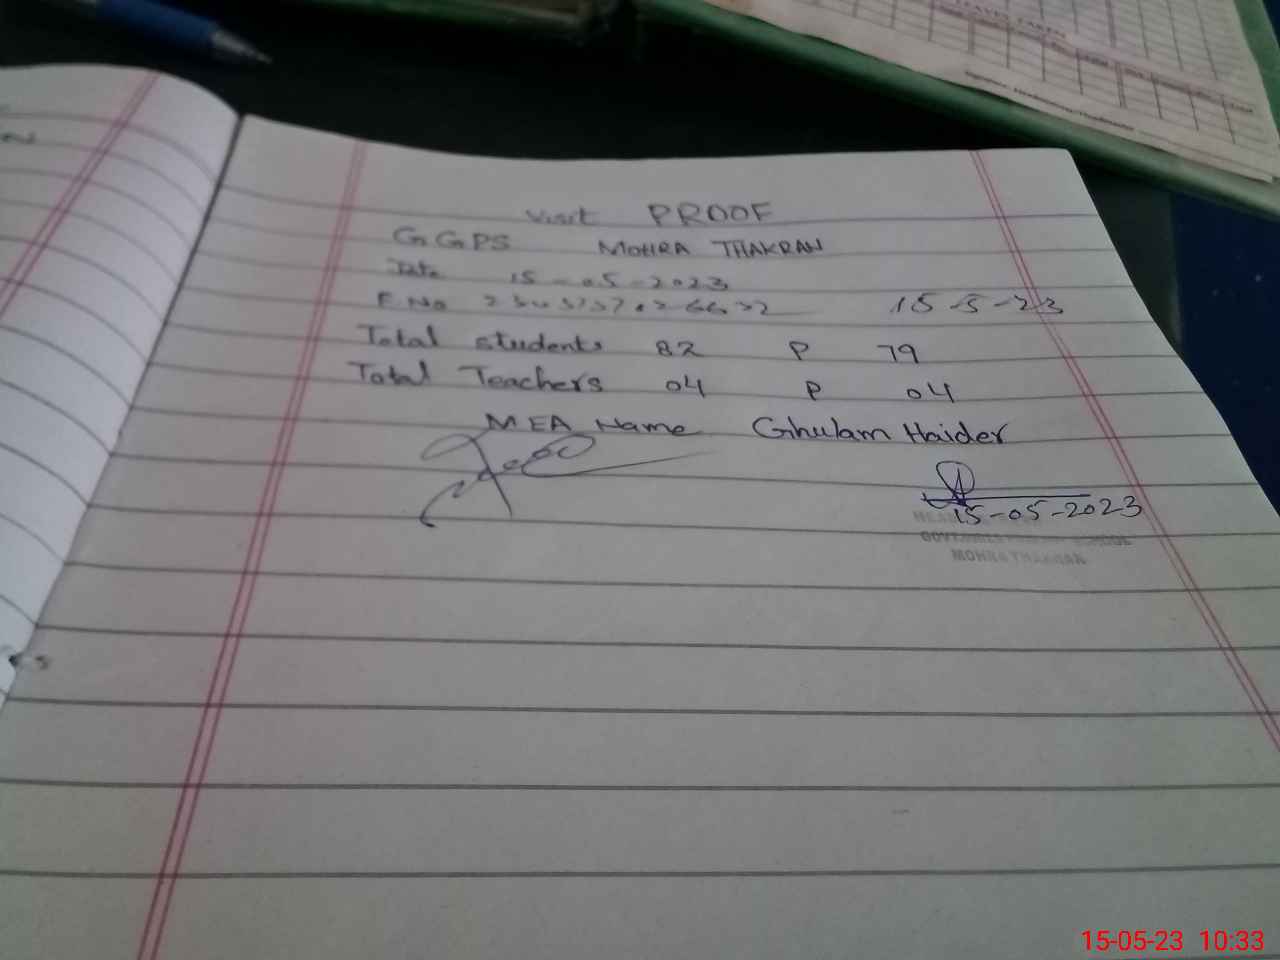 Visit PROOF
GGPS MOHRA THAKRAN
Date 15-05-2023
F. No 15-5-23
Total students 82 P 79
Total Teachers 04 P 04
MEA Name Ghulam Haider
15-05-2023
MOHRA THAKRAN
15-05-23 10:33